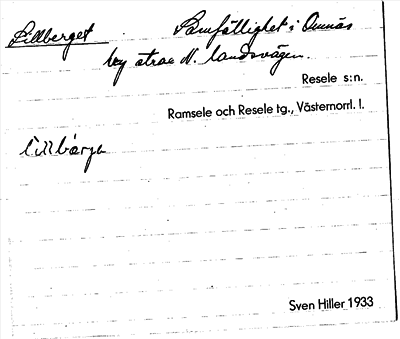 Lillberget Samfällighet i Omnäs
by strax N. landsvägen.
Resele s:n.
Ramsele och Resele tg., Västernorrl. l.
lillbärge
Sven Hiller 1933